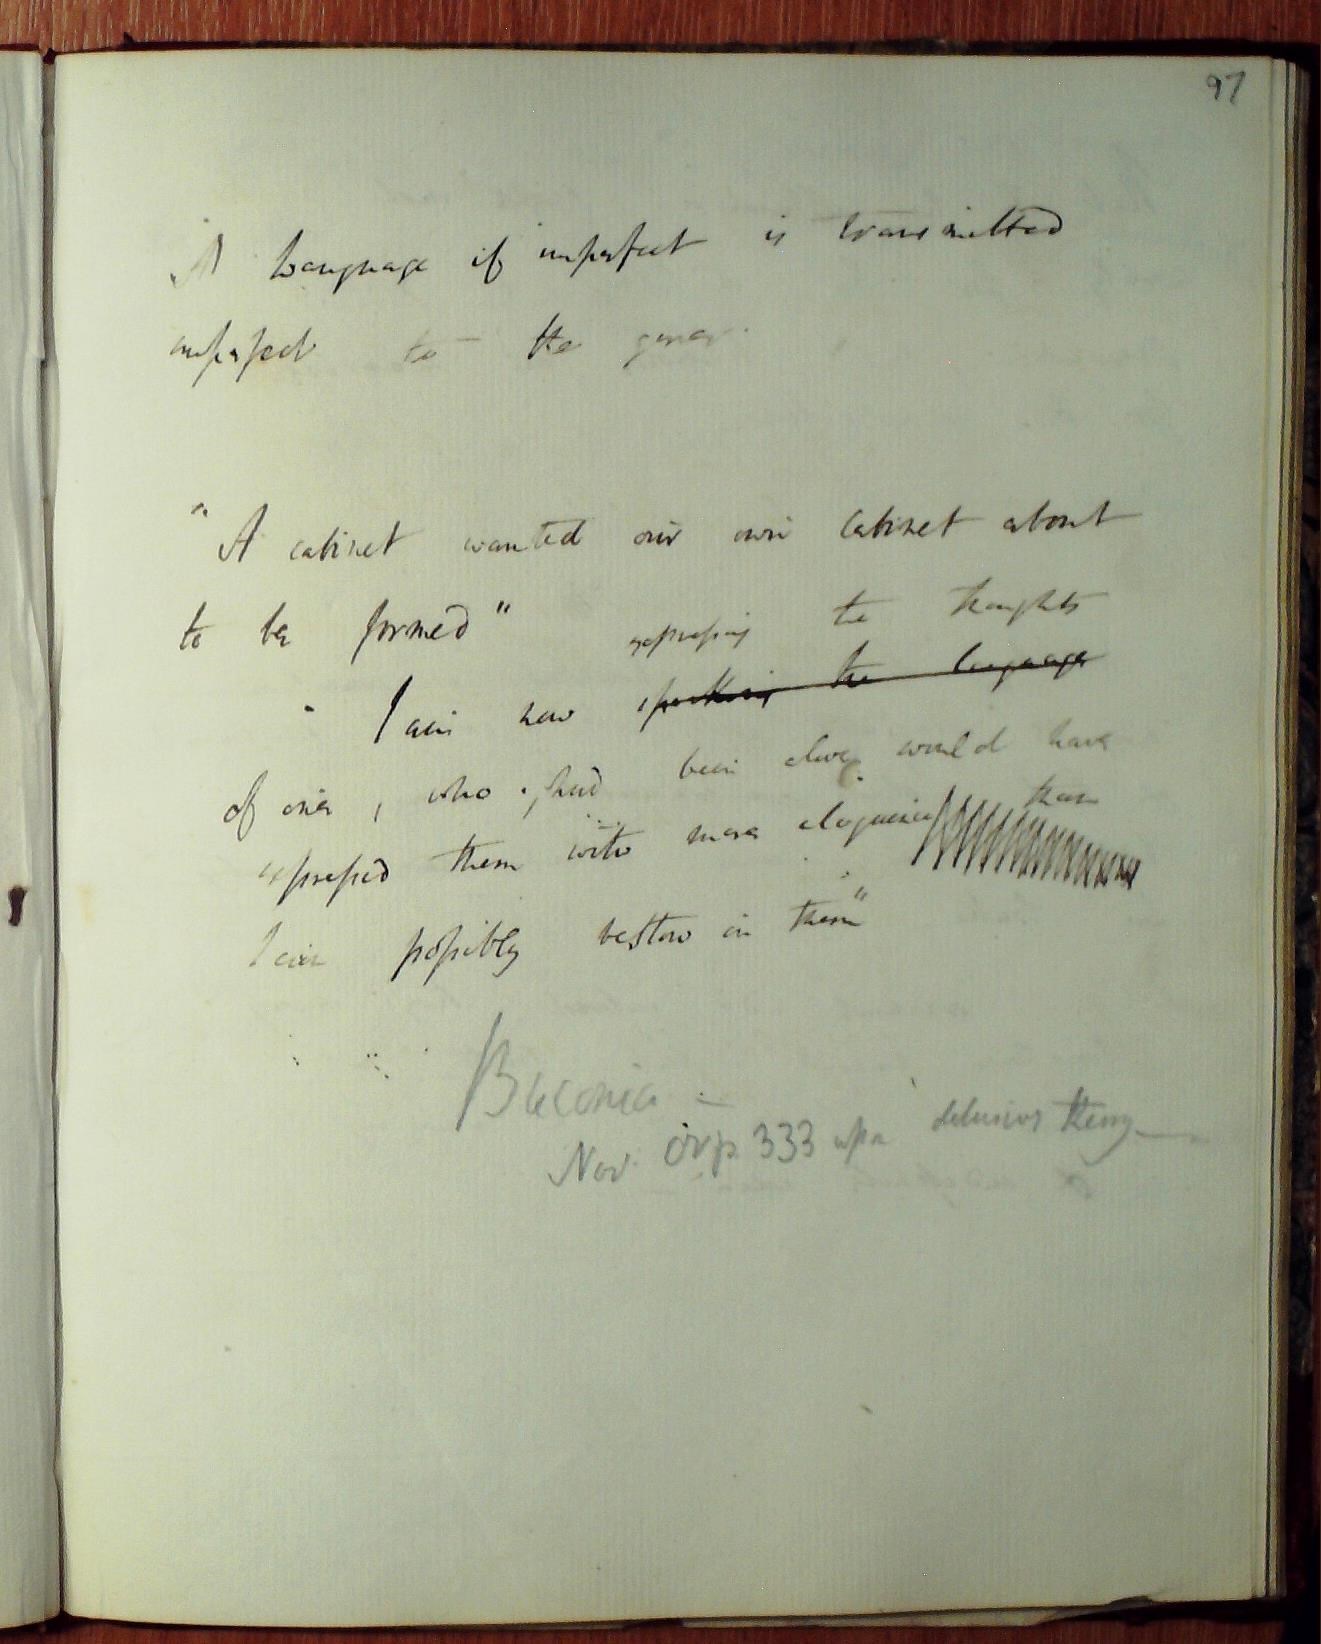 97
A language if imperfect is transmitted
imperfect to the gener
"A cabinet wanted our own cabinet about
to be formed"
expressing the thoughts
I am now speaking the language
of one, who if had been alive would have
expressed them with more eloquence than
I can possibly bestow on them"
Baconia
Nov. Org. 333 upn delusive theory